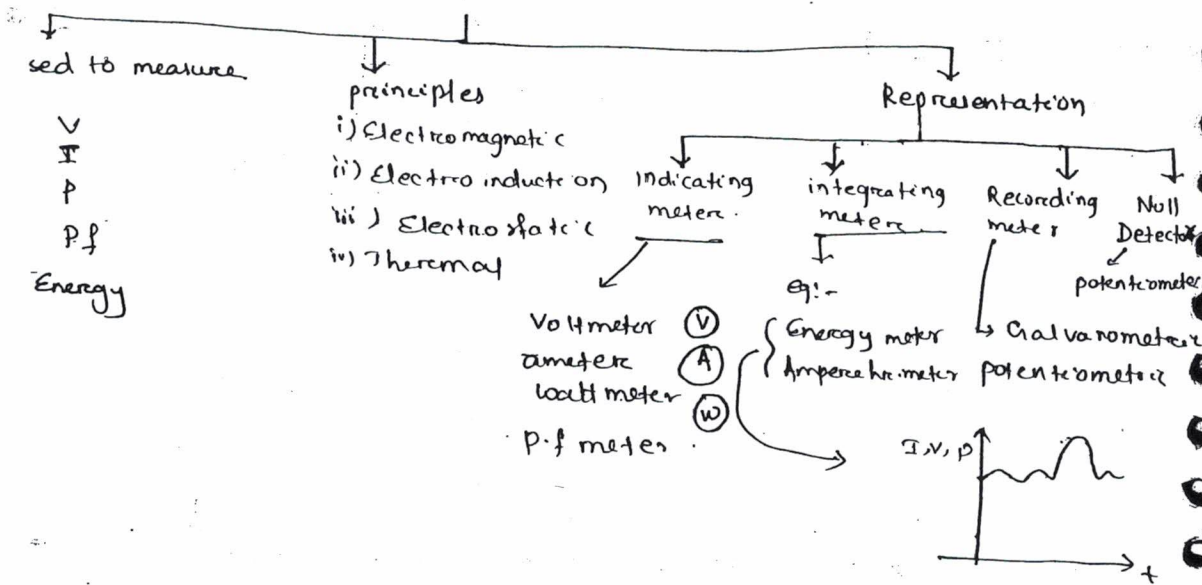 sed to measure
V
I
P
Pf
Energy
principles
i) Electromagnetic
ii) Electro induction
iii) Electrostatic
iv) Thermal
Representation
Indicating
meter.
Voltmeter V
ameter A
wattmeter W
P.f meter.
integrating
meter
eg:-
Energy meter
Ampere hr. meter
Recording
meter
Galvanometer
potentiometer
Null
Detector
potentiometer
I,V,P
t